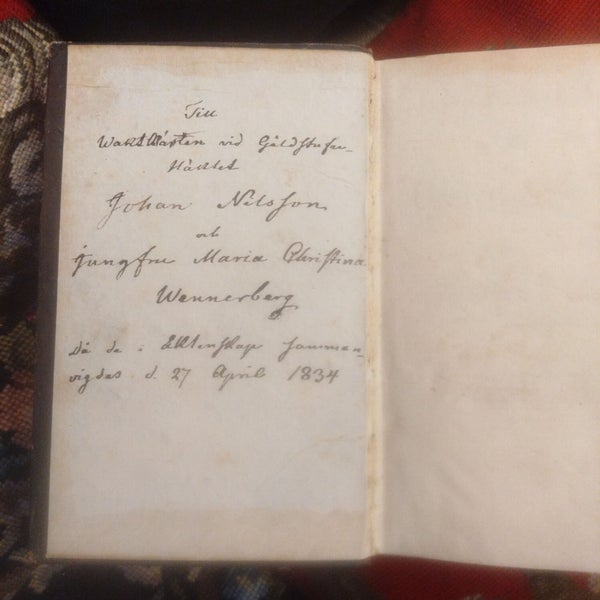 Till
Waktkarlen vid Gäldstufu-
Häcktet
Johan Nilsson
och
Jungfru Maria Christina
Wennerberg
Då de i Ektenskap samman-
vigdes d. 27 April 1834